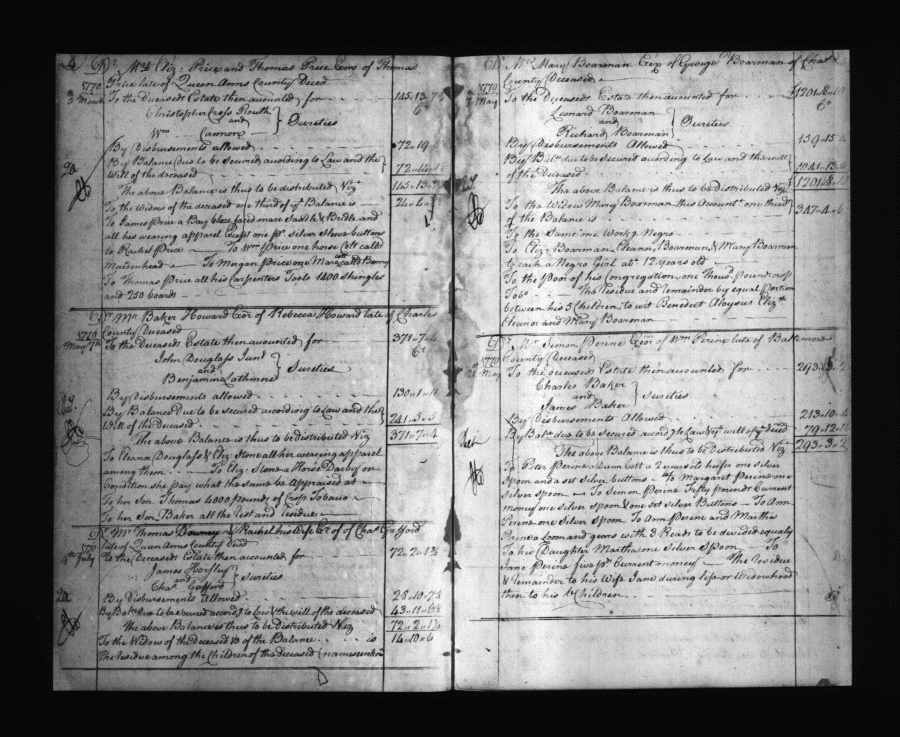 4 Dr. Mrs. Eliz: Price and Thomas Price Exors of Thomas
Price late of Queen Anns County Deced
1770
3 March To the Deceaseds Estate then accounted for 145..13..7½
Christopher Cross Routh
and } Sureties
Wm Cannon
By Disbursements allowed 72..19
By Balance due to be secured according to Law and the
Will of the deceased 72..14..
The above Balance is thus to be distributed Viz 145..13..
To the Widow of the deceased one third of ye Balance is
To James Price a Bay blaze faced mare Saddle & Bridle and
all his wearing apparel Except one pr silver Sleeve buttons
to Rachel Price To Wm Price one horse Colt called
Maidenhead To Morgan Price one Mare called Bonny
To Thomas Price all his Carpenters Tools 1400 shingles
and 250 boards
Dr. Mr. Baker Howard Exor of Rebecca Howard late of Charles
County Deceased
1770
May 7th To the Deceaseds Estate then accounted for 371..7..4
John Douglass Junr
and } Sureties
Benjamin Lathmore
By Disbursements allowed 130..1..11
By Balance Due to be secured according to Law and the
Will of the Deceased 241..3..5
The above Balance is thus to be distributed Viz 371..7..4
To Eleanr Douglass & Eliz: Stone all her wearing apparel
among them To Eliz: Stone a Horse Darby on
Condition she pay what the same be Appraised at
To her Son Thomas 4000 pounds of Crop Tobacco
To her Son Baker all the Rest and Residue
Dr. Mr. Thomas Downey & Rachel his Wife Exr of Chas
late of Queen Anns County Deced
1770
4th July To the Deceaseds Estate then accounted for 72..2..1¾
James
and } Sureties
Chas
By Disbursements Allowed 28..10..7¼
By Balce due to be secured accordg to Law & the will of the deceased 43..11..6½
The above Balance is thus to be distributed Viz 72..2..1¾
To the Widow of the deceased ⅓ of the Balance is 14..10..6
The residue among the Children of the deceased (names unknown
Dr. Mrs. Mary Boarman Exx of George Boarman of Chas
County Deceased
1770
May To the Deceaseds Estate then accounted for 1201
Leonard Boarman
and } Sureties
Richard Boarman
By Disbursements Allowed 159..15
By Balce due to be secured according to Law and the will
of the Deceased 1041..13..6
The above Balance is thus to be Distributed Viz 1201
To the Widow Mary Boarman this Account one third
of the Balance is 347..4..6
To the Same one Workg Negro
To Eliz: Boarman, Eleanor Boarman, & Mary Boarman
to each a Negro Girl at 12 years old
To the poor of his Congregation one Thousd pounds crop
Tobo The Residue and remainder by equal Portion
between his 5 Children, to wit Benedict Aloysus Elizth
Eleanor and Mary Boarman
Dr. Mr. Simon Perine Exor of Wm Perine late of Baltimore
County (deceased)
1770
May To the deceaseds Estate then accounted for 293..3..2
Charles Baker
and } Sureties
James Baker
By Disbursements Allowed 213..10..4
By Balce due to be secured accordg to Law & ye will of ye Deced 79..12..10
The above Balance is thus to be Distributed Viz 293..3..2
To Peter Perine a Dunn Colt a 2 years old heifer one silver
Spoon and a set silver buttons To Margaret Perine one
Silver spoon To Simon Perine Fifty pounds Current
money one silver spoon & one set silver Buttons To Ann
Perine one Silver Spoon To Ann Perine and Martha
Perine a Loom and gears with 3 Reads to be devided equaly
To his Daughter Martha one Silver Spoon To
Jane Perine five pds Current money The Residue
& remainder to his Wife Jane during life or Widowhood
then to his Children